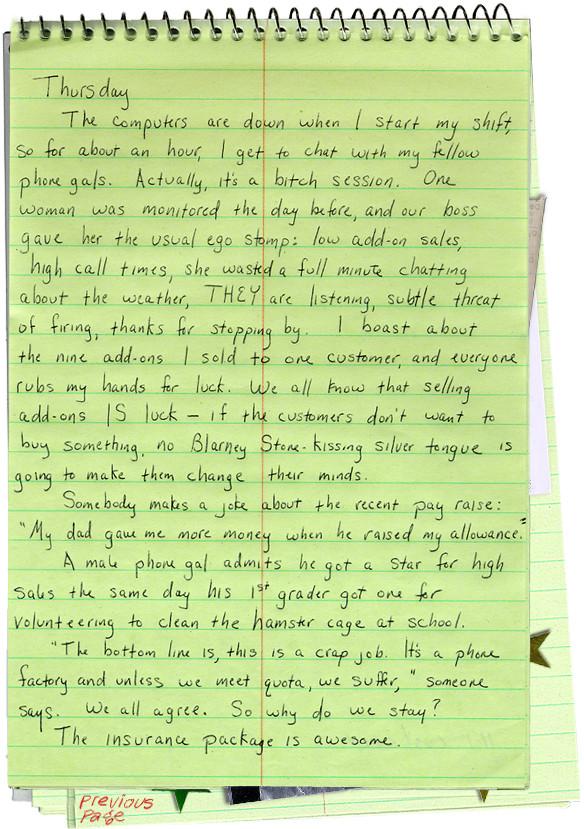 Thursday
The computers are down when I start my shift,
so for about an hour, I get to chat with my fellow
phone gals. Actually, it's a bitch session. One
woman was monitored the day before, and our boss
gave her the usual ego stomp: low add-on sales,
high call times, she wasted a full minute chatting
about the weather, THEY are listening, subtle threat
of firing, thanks for stopping by. I boast about
the nine add-ons I sold to one customer, and everyone
rubs my hands for luck. We all know that selling
add-ons IS luck – if the customers don't want to
buy something, no Blarney Stone-kissing silver tongue is
going to make them change their minds.
Somebody makes a joke about the recent pay raise:
"My dad gave me more money when he raised my allowance."
A male phone gal admits he got a star for high
sales the same day his 1st grader got one for
volunteering to clean the hamster cage at school.
"The bottom line is, this is a crap job. It's a phone
factory and unless we meet quota, we suffer," someone
says. We all agree. So why do we stay?
The insurance package is awesome.
previous
page